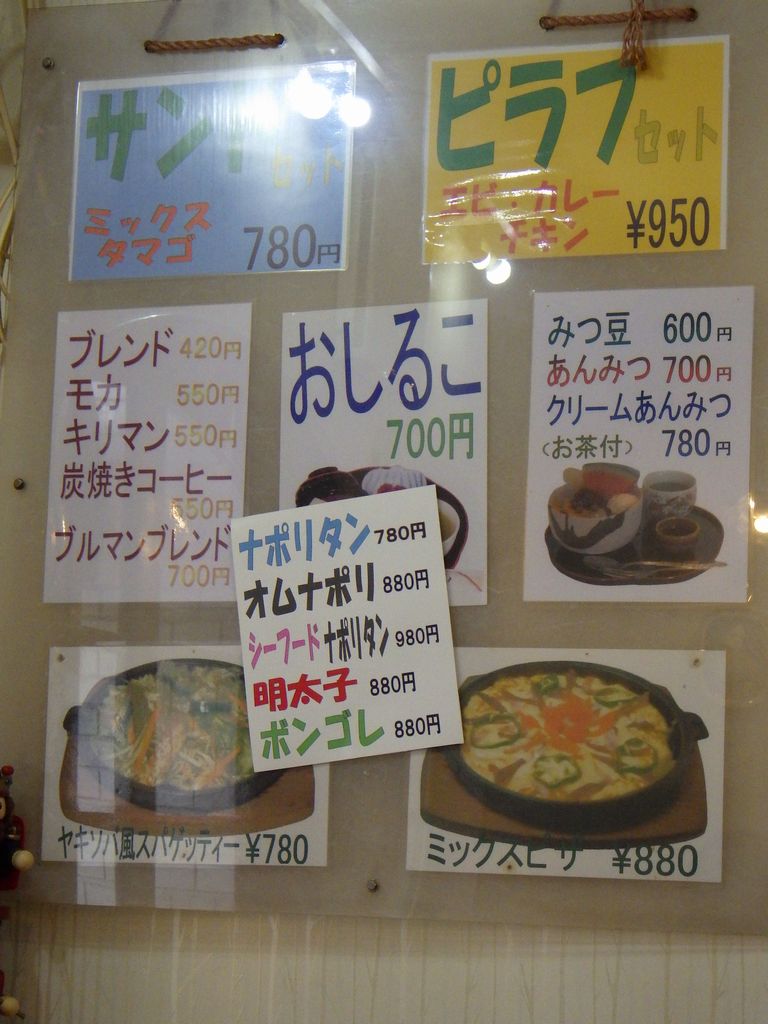 サンド セット
ミックス
タマゴ 780円
ピラフ セット
エビ・カレー
チキン ¥950
ブレンド 420円
モカ 550円
キリマン 550円
炭焼きコーヒー
550円
ブルマンブレンド
700円
おしるこ
700円
みつ豆 600円
あんみつ 700円
クリームあんみつ
(お茶付) 780円
ナポリタン 780円
オムナポリ 880円
シーフードナポリタン 980円
明太子 880円
ボンゴレ 880円
ヤキソバ風スパゲッティー ¥780
ミックスピザ ¥880